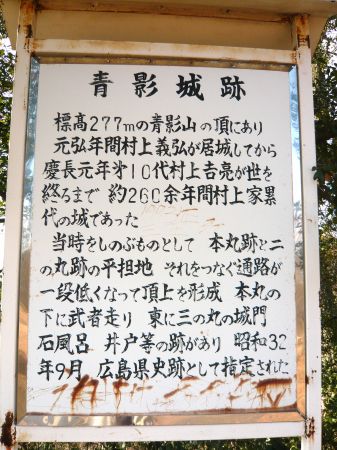 青影城跡
標高277mの青影山の頂にあり
元弘年間村上義弘が居城してから
慶長元年才10代村上吉亮が世を
終るまで 約260余年間村上家累
代の城であった
当時をしのぶものとして 本丸跡と二
の丸跡の平担地 それをつなぐ通路が
一段低くなって頂上を形成 本丸の
下に武者走り 東に三の丸の城門
石風呂 井戸等の跡があり 昭和32
年9月 広島県史跡として指定された